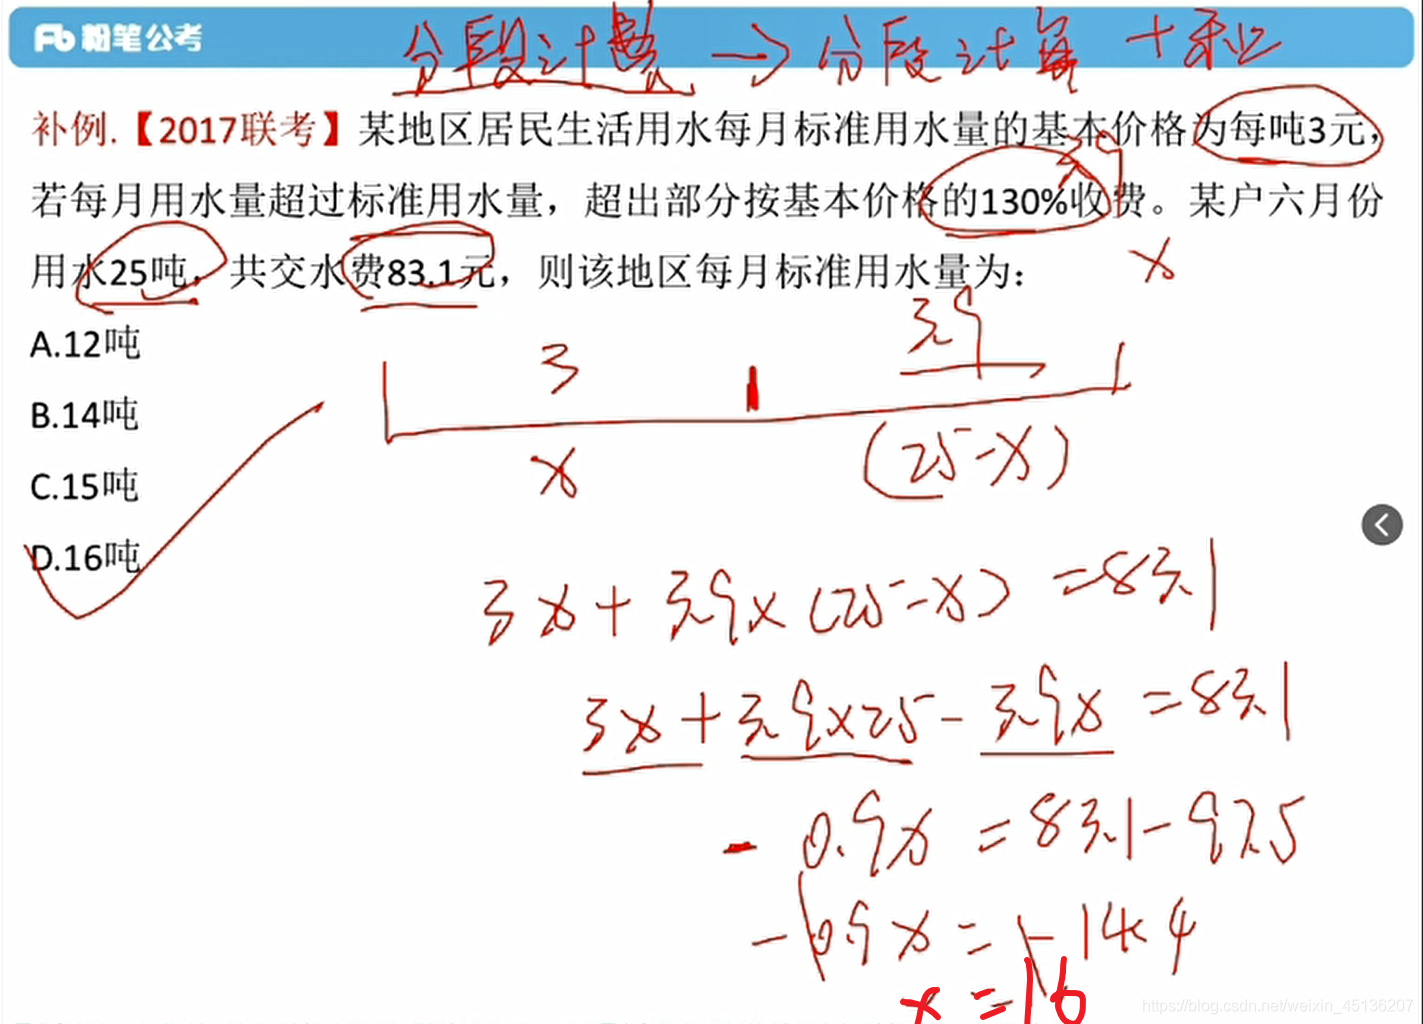 粉笔公考
分段计费 → 分段计算 + 利
补例.【2017联考】某地区居民生活用水每月标准用水量的基本价格为每吨3元，
3.9
若每月用水量超过标准用水量，超出部分按基本价格的130%收费。某户六月份
用水25吨，共交水费83.1元，则该地区每月标准用水量为：
x
A.12吨
3 3.9
B.14吨
x (25-x)
C.15吨
D.16吨
3x+3.9×(25-x)=83.1
3x+3.9×25-3.9x=83.1
-0.9x=83.1-97.5
-0.9x=-14.4
x=16
https://blog.csdn.net/weixin_45136207